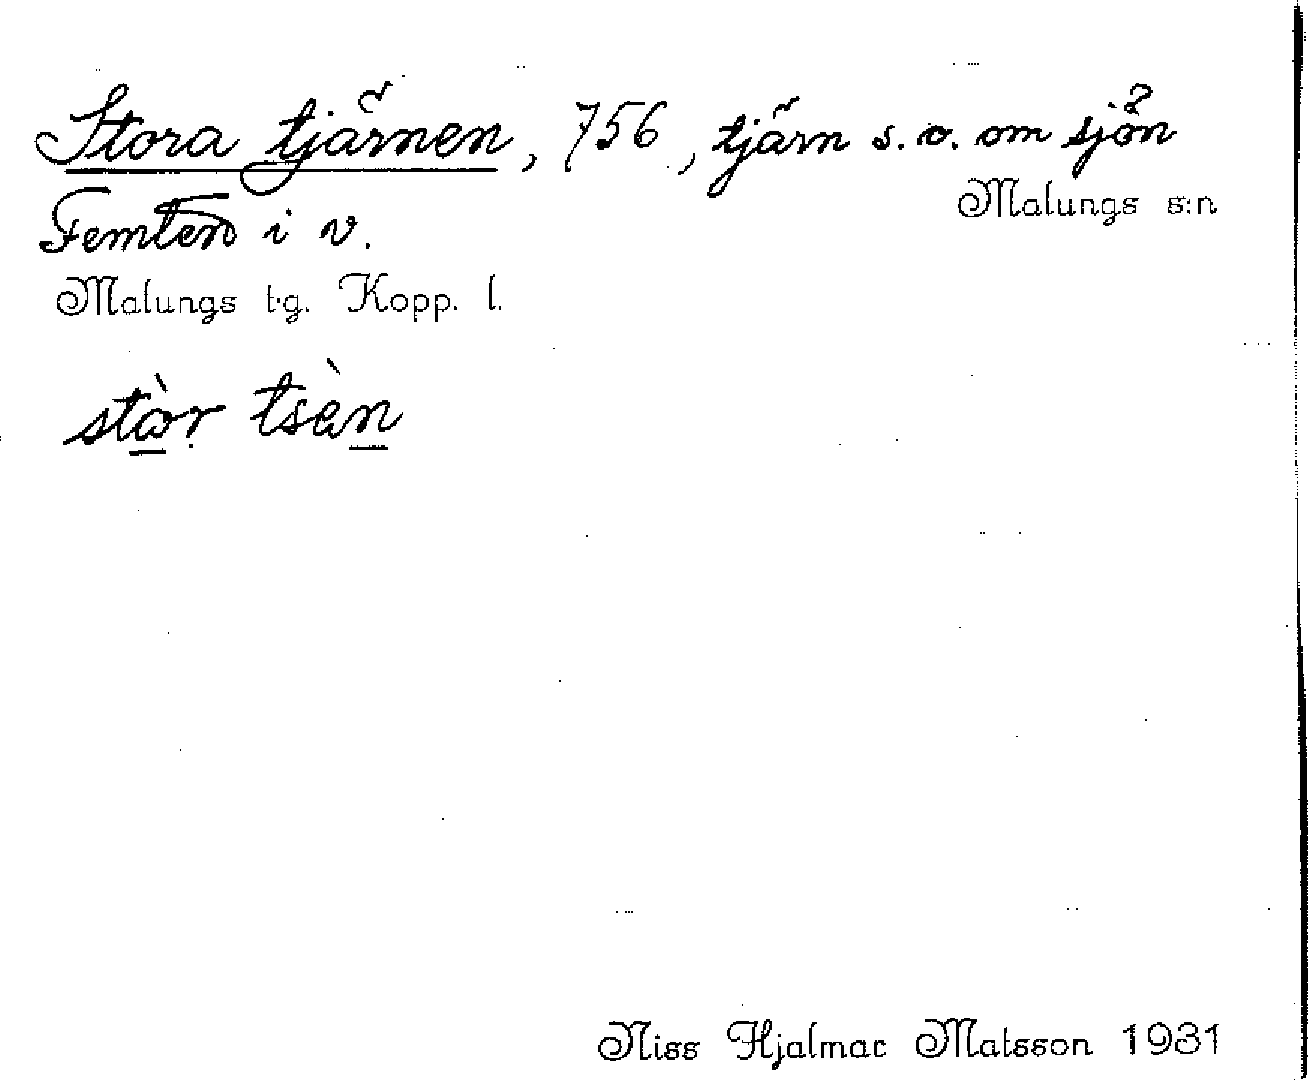 Stora tjärnen, 756, tjärn s.v. om sjön
Malungs s:n
Femten i v.
Malungs t.g. Kopp. l.
stòr tsèn
Niss Hjalmar Matsson 1931